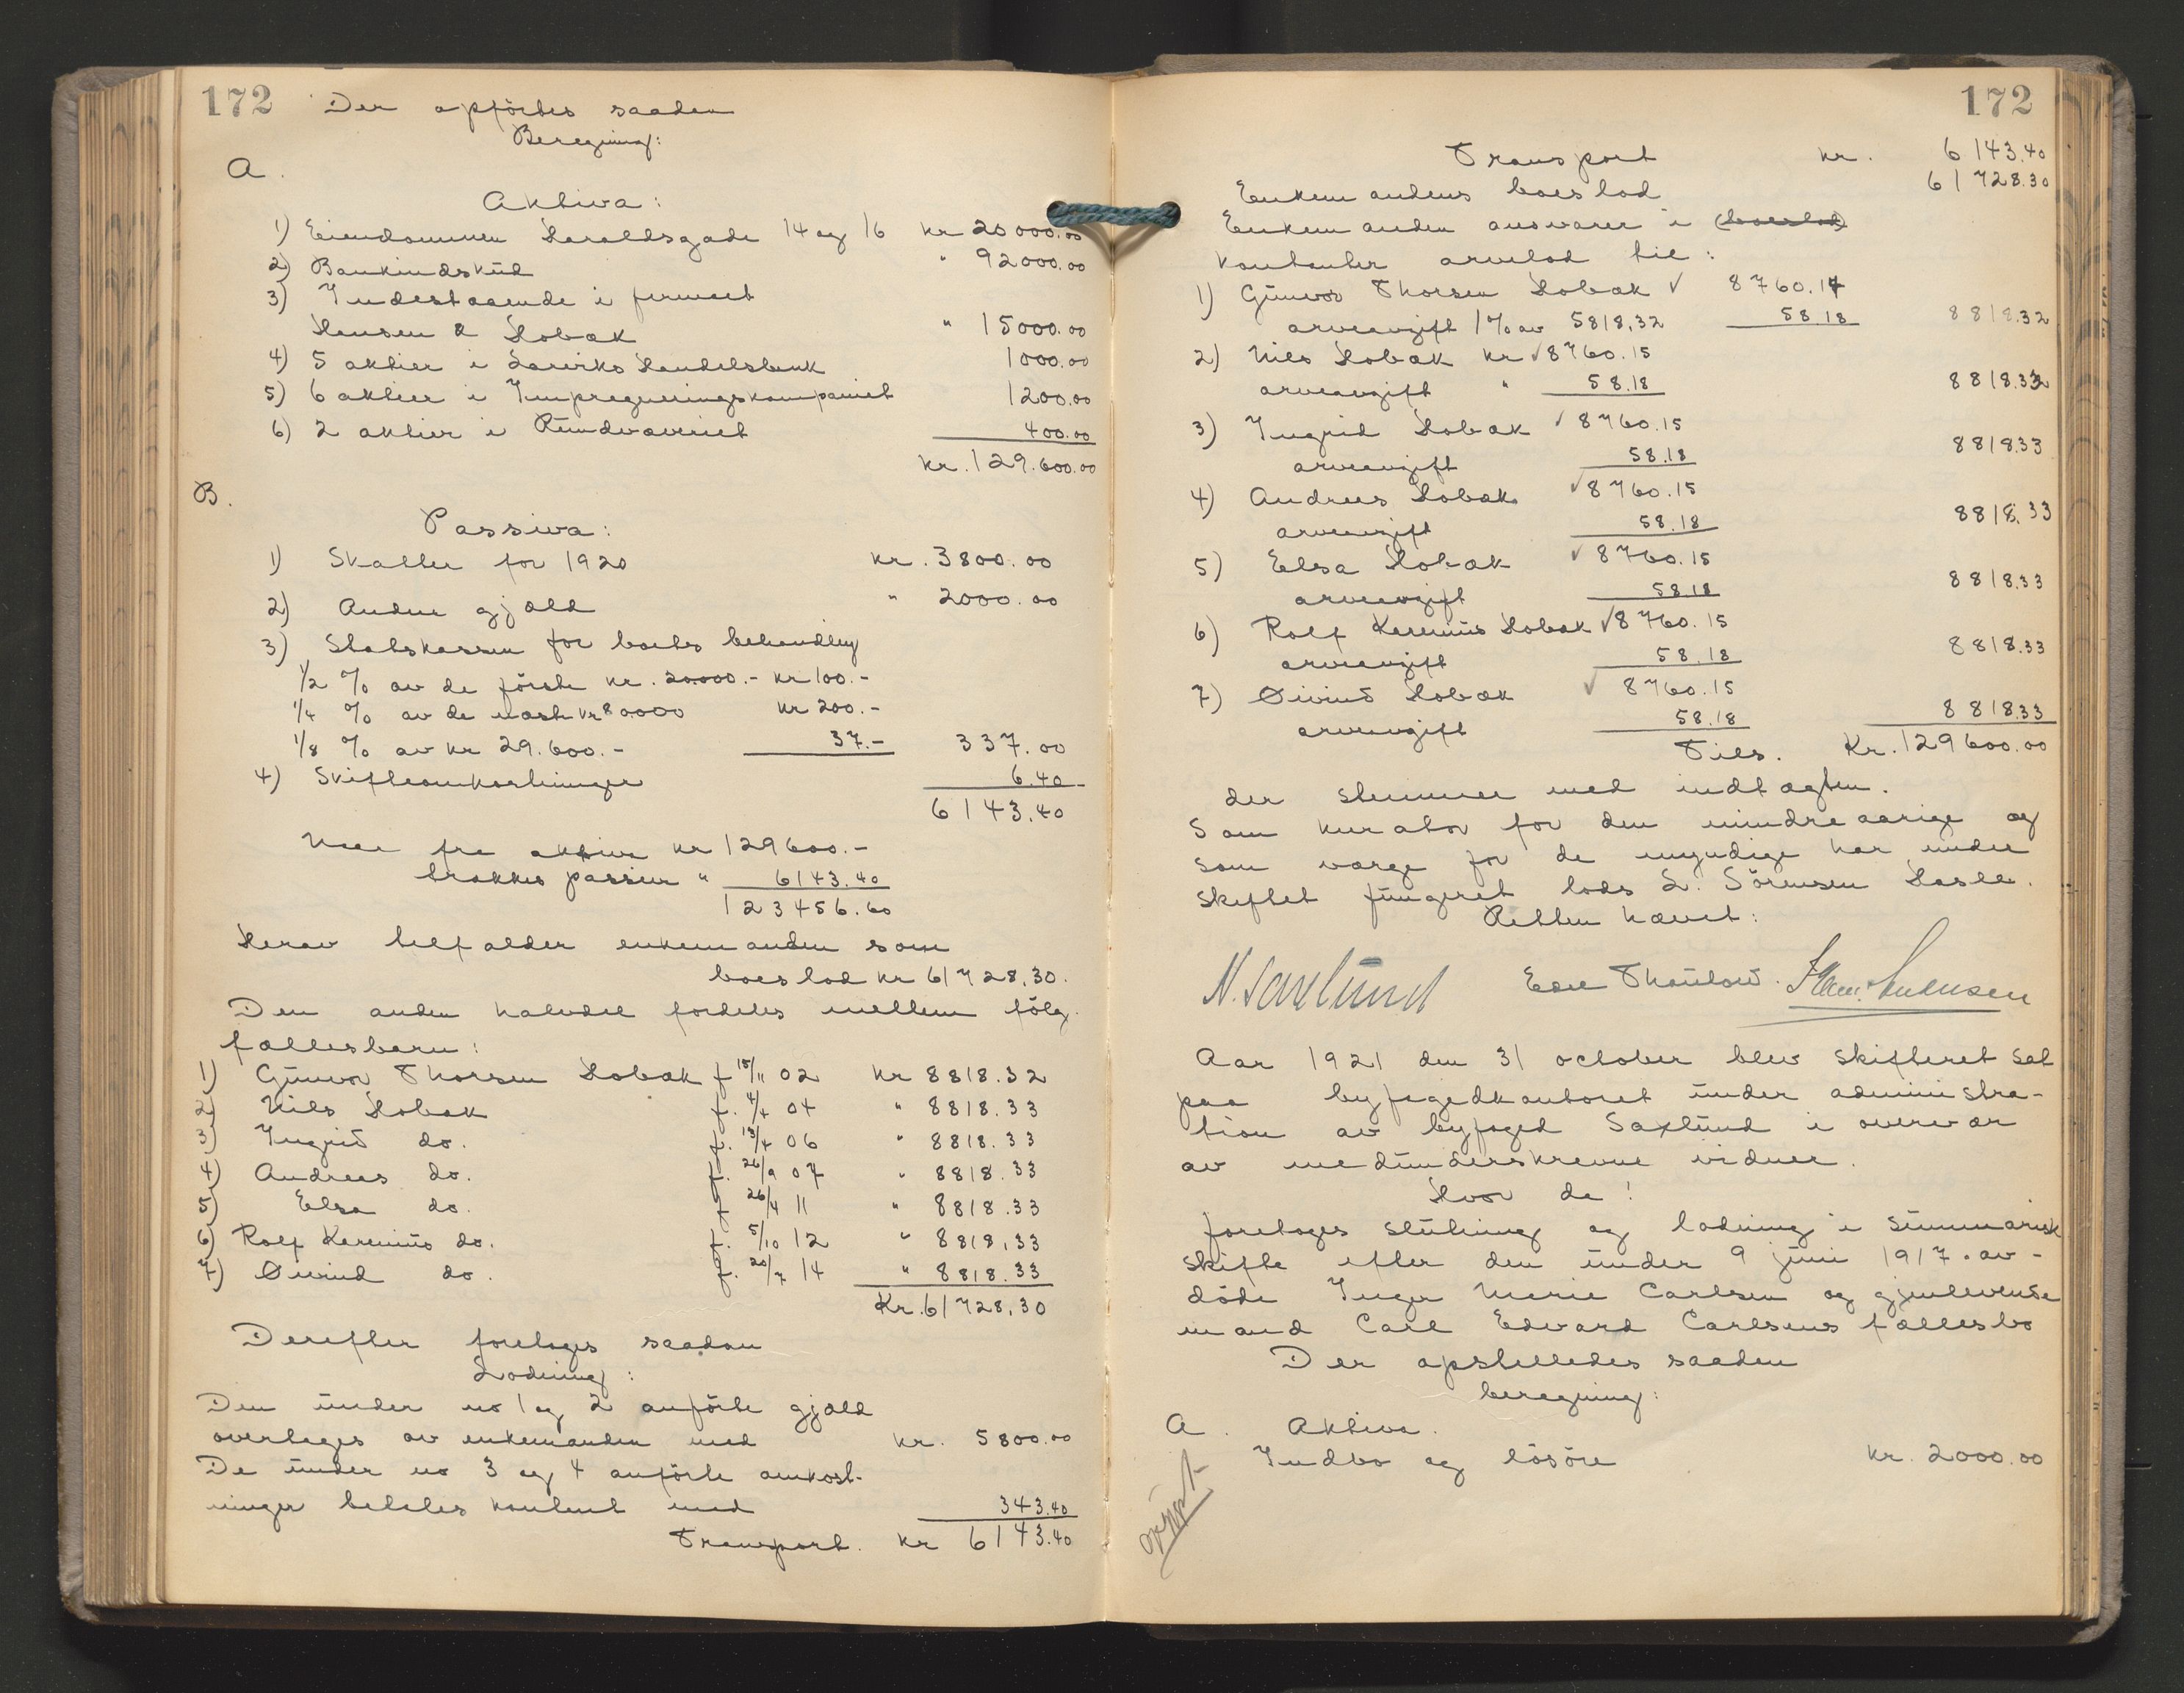 172 Der opförtes saaden
Beregning:
A.
Aktiva:
1) Eiendommen Haraldsgade 14 og 16 kr 20000.00
2) Bankindskud " 92000.00
3) Indestaaende i firmaet
Hansen & Hobæk " 15000.00
4) 5 aktier i Larviks Handelsbank 1000.00
5) 6 aktier i Impregneringskompaniet 1200.00
6) 2 aktier i 400.00
kr. 129.600.00
B.
Passiva:
1) Skatter for 1920 kr. 3800.00
2) Anden gjæld " 2000.00
3) Statskassen for boets behandling
1/2 % av de förste kr. 20.000.- kr 100.-
1/4 % av de næste kr 80000 kr 200.-
1/8 % av kr 29.600.- 37.- 337.00
4) Skifteomkostninger 6.40
6143.40
Naar fra aktiva kr 129600.-
trækkes passiva " 6143.40
123456.60
Herav tilfalder enkemanden som
boeslod kr 61728,30.
Den anden halvdel fordeles mellem følg.
fællesbarn:
1) Gunvor Thorsen Hobæk f 15/11 02 kr 8818.32
2) Nils Hobæk f. 4/4 04 " 8818.33
3) Ingrid do. f. 13/4 06 " 8818.33
4) Andreas do. f. 26/9 07 " 8818.33
5) Elsa do. f 26/4 11 " 8818.33
6) Rolf Kerenius do. f. 5/10 12 " 8818,33
7) Øivind do. f. 20/7 14 " 8818.33
Kr. 61728,30
Derefter foretages saadan
Lodning:
Den under no 1 og 2 anförte gjæld
overtages av enkemanden med kr. 5800.00
De under no 3 og 4 anförte omkost-
ninger betales kontant med 343.40
Transport. kr 6143.40
172
Transport kr. 6143.40
Enkemandens boeslod 61728.30
Enkemanden ansvarer i (boeslod)
kontanter arvelod til:
1) Gunvor Thorsen Hobæk √ 8760.14
arveavgift 1% av 5818,32 58.18 8818.32
2) Nils Hobæk kr √ 8760.15
arveavgift " 58.18 8818.33
3) Ingrid Hobæk √ 8760.15
arveavgift 58.18 8818.33
4) Andreas Hobæk √ 8760.15
arveavgift 58.18 8818.33
5) Elsa Hobæk √ 8760.15
arveavgift 58.18 8818.33
6) Rolf Kerenius Hobæk √ 8760.15
arveavgift 58.18 8818.33
7) Øivind Hobæk √ 8760.15
arveavgift 58.18 8818.33
Tils. Kr. 129600.00
der stemmer med indtægten.
Som kurator for den mindreaarige og
som værge for de umyndige har under
skiftet fungeret lods L. Sörensen Hasle.
Retten hævet:
N. Saxlund Edle Thaulow.
Aar 1921 den 31 october blev skifteret sat
paa byfogedkontoret under administra-
tion av byfoged Saxlund i overvær
av medunderskrevne vidner.
Hvor da!
foretoges slutning og lodning i summarisk
skifte efter den under 9 juni 1917 av-
döde Inger Marie Carlsen og gjenlevende
mand Carl Edvard Carlsens fællesbo
Der opstilledes saaden
beregning:
A. Aktiva.
Indbo og lösöre kr. 2000.00